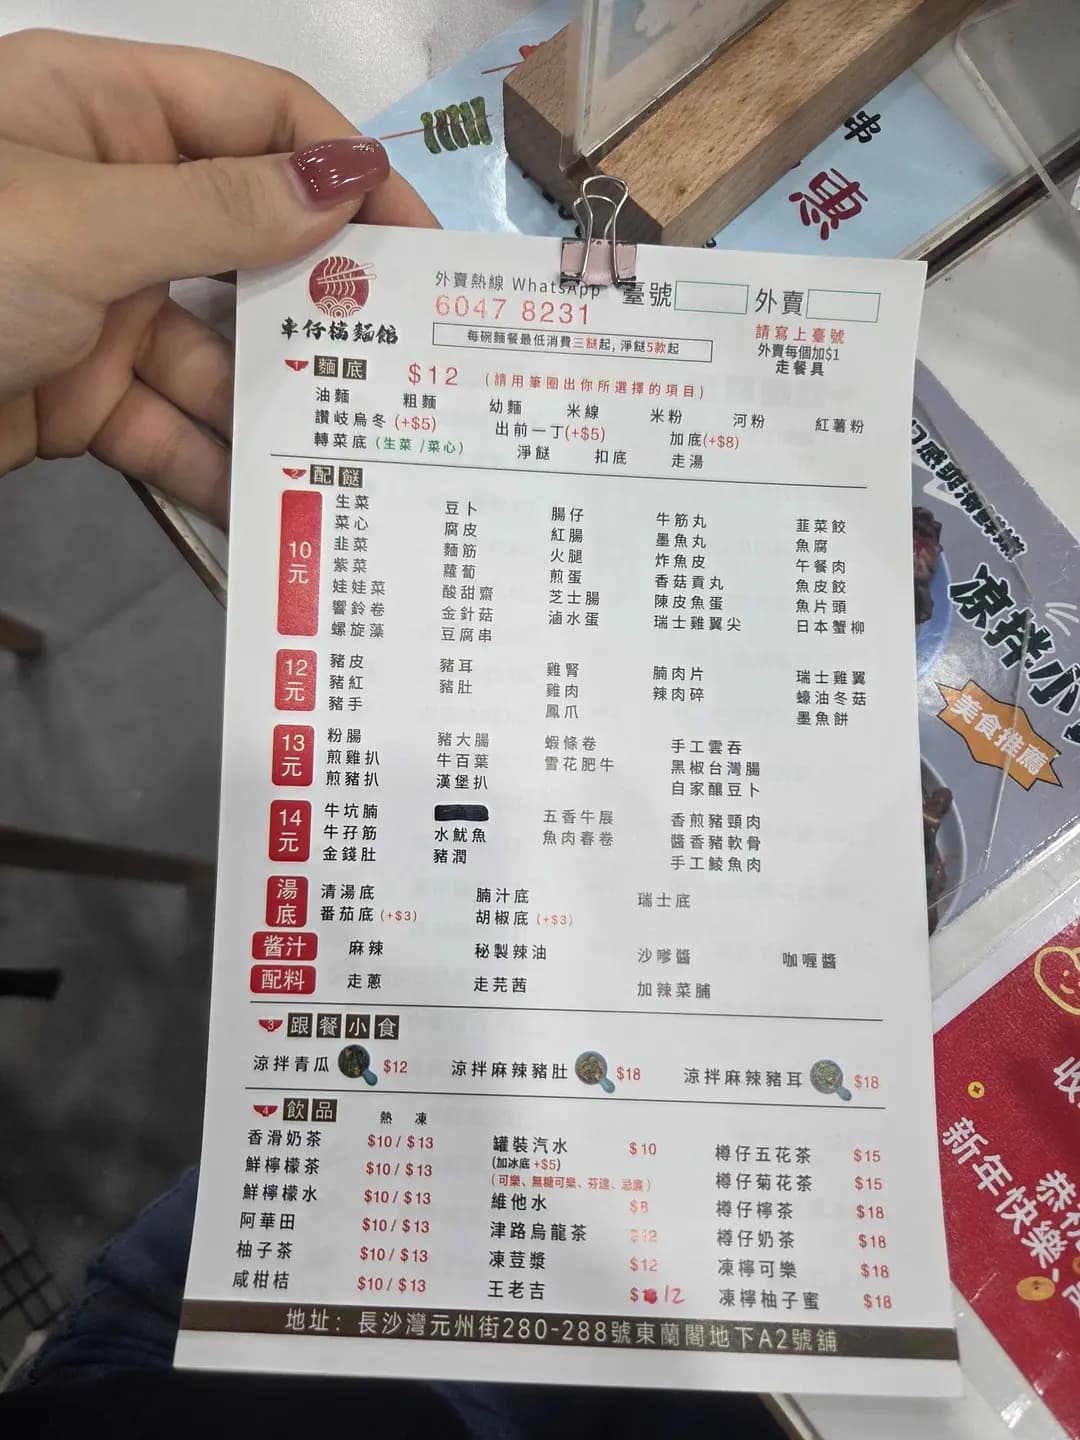 車仔檔麵館
外賣熱線 WhatsApp
6047 8231
臺號 外賣
請寫上臺號
外賣每個加$1
走餐具
每碗麵餐最低消費三餸起, 淨餸5款起
1 麵底 $12 (請用筆圈出你所選擇的項目)
油麵 粗麵 幼麵 米線 米粉 河粉 紅薯粉
讚岐烏冬 (+$5) 出前一丁(+$5) 加底(+$8)
轉菜底 (生菜 /菜心) 淨餸 扣底 走湯
2 配餸
10元
生菜 豆卜 腸仔 牛筋丸 韮菜餃
菜心 腐皮 紅腸 墨魚丸 魚腐
韭菜 麵筋 火腿 炸魚皮 午餐肉
紫菜 蘿蔔 煎蛋 香菇貢丸 魚皮餃
娃娃菜 酸甜齋 芝士腸 陳皮魚蛋 魚片頭
響鈴卷 金針菇 滷水蛋 瑞士雞翼尖 日本蟹柳
螺旋藻 豆腐串
12元
豬皮 豬耳 雞腎 腩肉片 瑞士雞翼
豬紅 豬肚 雞肉 辣肉碎 蠔油冬菇
豬手 鳳爪 墨魚餅
13元
粉腸 豬大腸 蝦條卷 手工雲吞
煎雞扒 牛百葉 雪花肥牛 黑椒台灣腸
煎豬扒 漢堡扒 自家釀豆卜
14元
牛坑腩 五香牛展 香煎豬頸肉
牛孖筋 水魷魚 魚肉春卷 醬香豬軟骨
金錢肚 豬潤 手工鯪魚肉
湯底
清湯底 腩汁底 瑞士底
番茄底 (+$3) 胡椒底 (+$3)
酱汁 麻辣 秘製辣油 沙嗲醬 咖喱醬
配料 走蔥 走芫茜 加辣菜脯
3 跟餐小食
涼拌青瓜 $12 涼拌麻辣豬肚 $18 涼拌麻辣豬耳 $18
4 飲品 熱 凍
香滑奶茶 $10 / $13 罐裝汽水 $10 樽仔五花茶 $15
(加冰底 +$5)
(可樂、無糖可樂、芬達、忌廉)
鮮檸檬茶 $10 / $13 樽仔菊花茶 $15
鮮檸檬水 $10 / $13 維他水 $8 樽仔檸茶 $18
阿華田 $10 / $13 津路烏龍茶 $12 樽仔奶茶 $18
柚子茶 $10 / $13 凍荳漿 $12 凍檸可樂 $18
咸柑桔 $10 / $13 王老吉 $12 凍檸柚子蜜 $18
地址：長沙灣元州街280-288號東蘭閣地下A2號舖
串
惠
涼拌小
美食推薦
新年快樂
恭
收